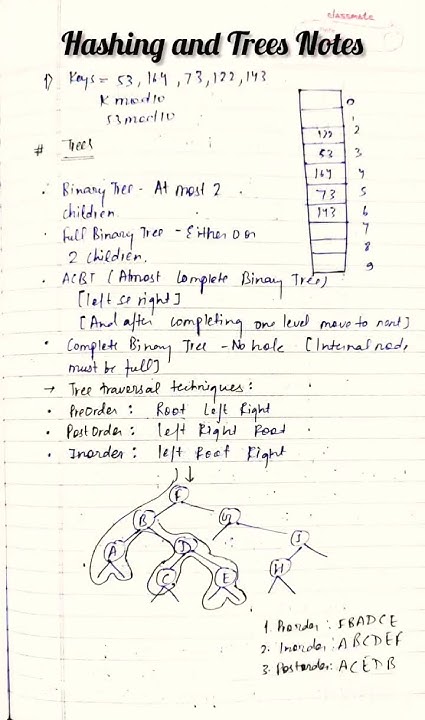 classmate
Hashing and Trees Notes
1) Keys = 53, 164, 73, 122, 143
K mod 10
53 mod 10
0
1
122 2
53 3
164 4
73 5
143 6
7
8
9
# Trees
• Binary Tree - At most 2
children.
• Full Binary Tree - Either 0 or
2 children.
• ACBT (Almost Complete Binary Tree)
[left se right]
[And after completing one level move to next]
• Complete Binary Tree - No hole [Internal node
must be full]
→ Tree traversal techniques:
• PreOrder: Root Left Right
• PostOrder: left Right Root
• Inorder: left Root Right
F
B G
A D I
C E H
1. Preorder: FBADCE
2. Inorder: ABCDEF
3. Postorder: ACEDB